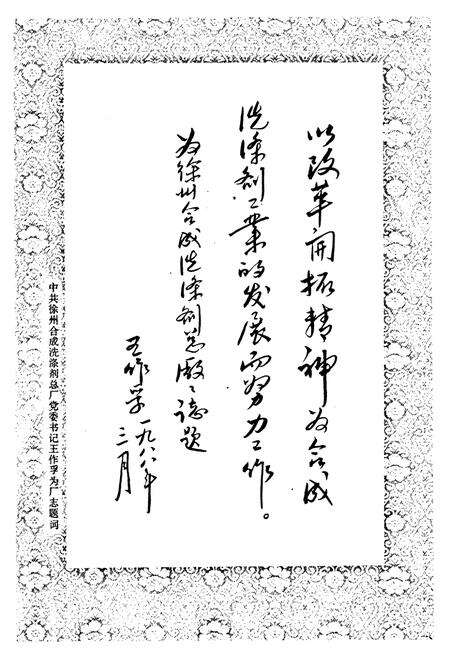 以改革开拓精神为合成
洗涤剂工業的发展而努力工作。
为徐州合成洗涤剂总廠〻誌题
王作孚 一九八六年
三月
中共徐州合成洗涤剂总厂党委书记王作孚为厂志题词